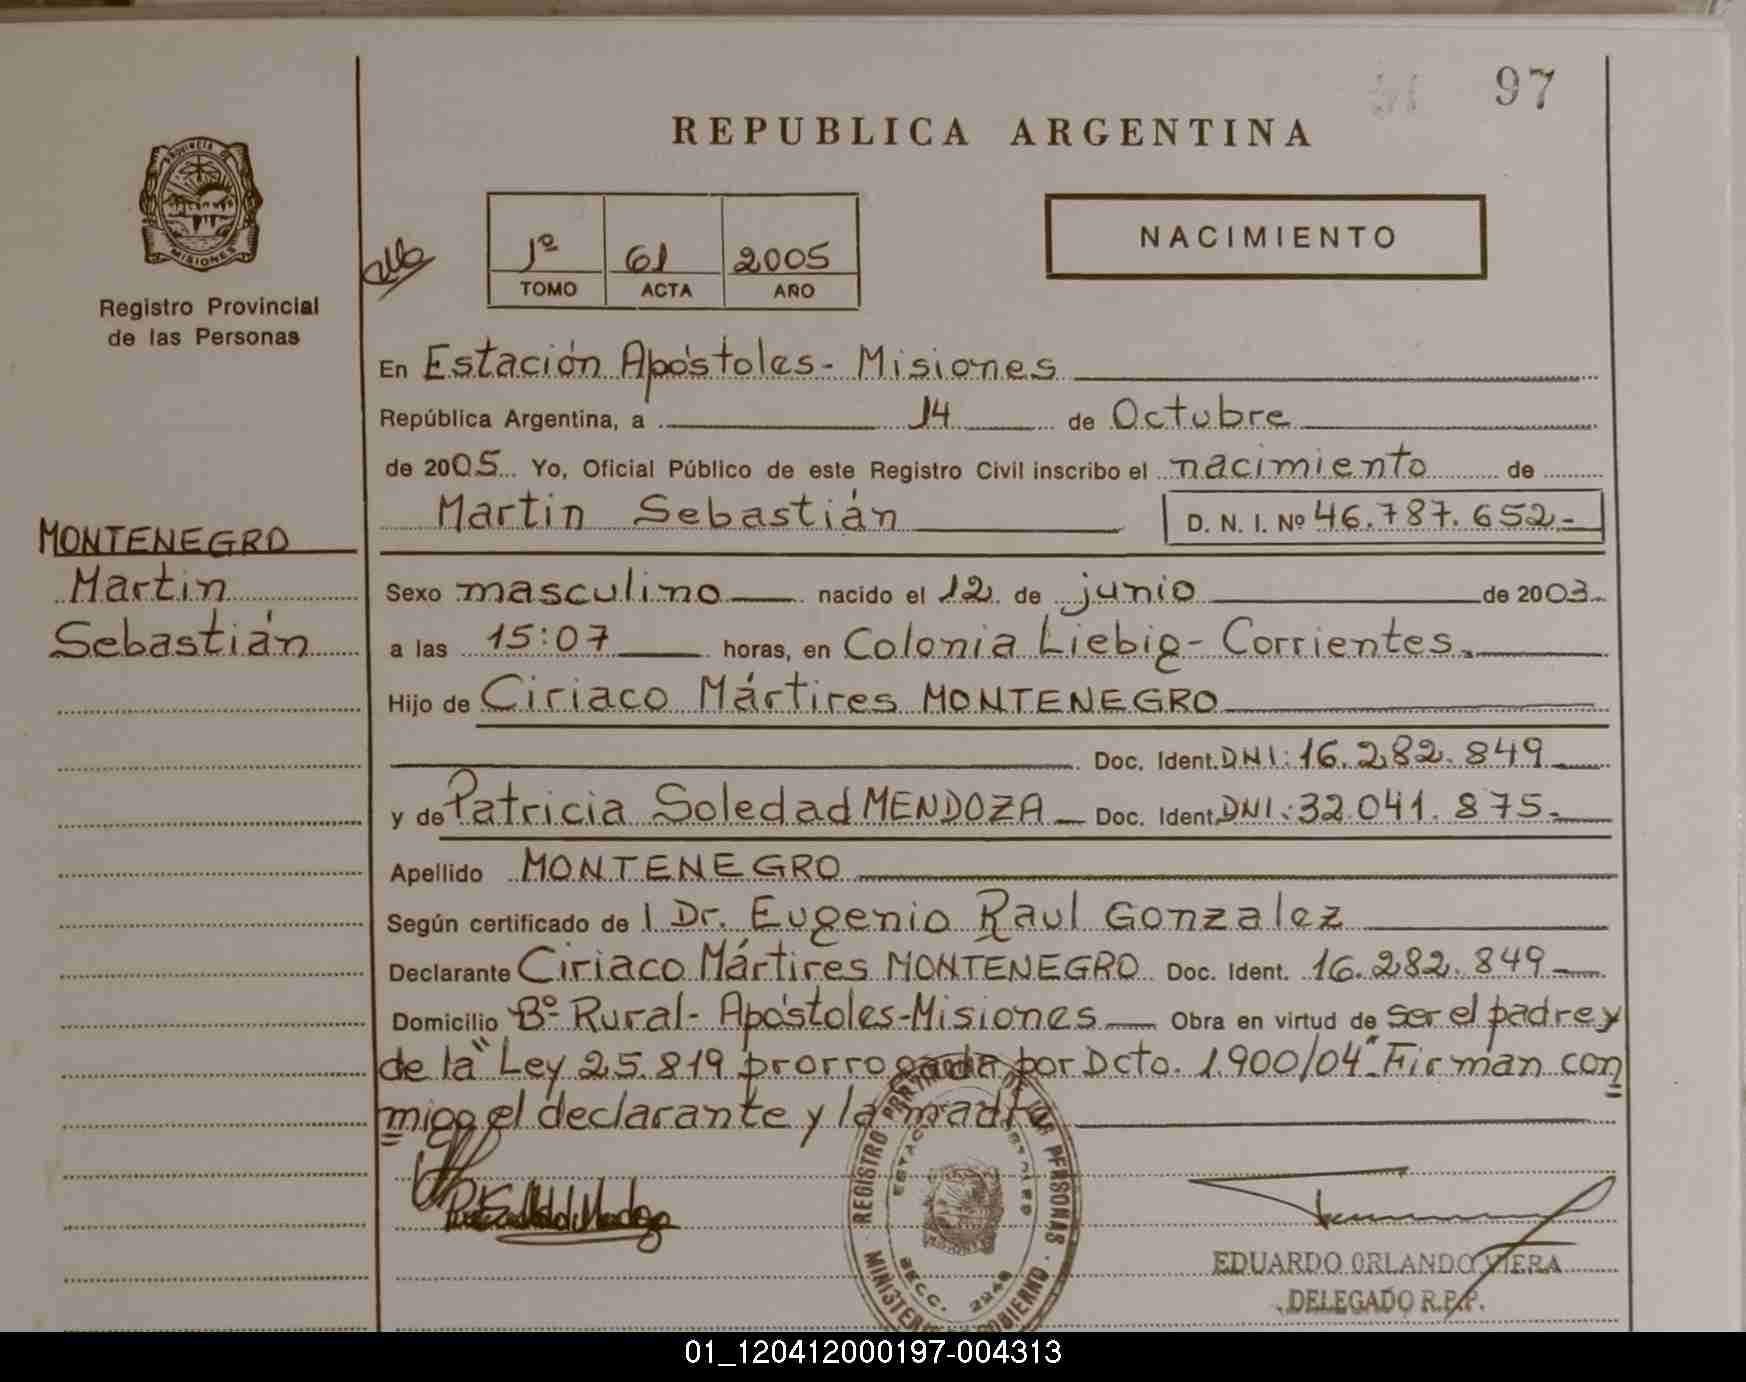 97
REPUBLICA ARGENTINA
PROVINCIA DE
MISIONES
Registro Provincial
de las Personas
1º 61 2005
TOMO ACTA AÑO
NACIMIENTO
En Estación Apóstoles - Misiones
República Argentina, a 14 de Octubre
de 2005 Yo, Oficial Público de este Registro Civil inscribo el nacimiento de
Martin Sebastián D. N. I. Nº 46.787.652.-
MONTENEGRO
Martin
Sebastián
Sexo masculino nacido el 12 de junio de 2003
a las 15:07 horas, en Colonia Liebig - Corrientes.
Hijo de Ciriaco Mártires MONTENEGRO
Doc. Ident. DNI: 16.282.849
y de Patricia Soledad MENDOZA Doc. Ident. DNI: 32.041.875.-
Apellido MONTENEGRO
Según certificado de Dr. Eugenio Raul Gonzalez
Declarante Ciriaco Mártires MONTENEGRO Doc. Ident. 16.282.849
Domicilio Bº Rural - Apóstoles - Misiones Obra en virtud de ser el padre y
de la "Ley 25.819 prorrogada por Dcto. 1.900/04". Firman con
migo el declarante y la madre
REGISTRO DE LAS PERSONAS
MINISTERIO GOBIERNO
SECC.
EDUARDO ORLANDO VIERA
DELEGADO R.P.P.
01_120412000197-004313